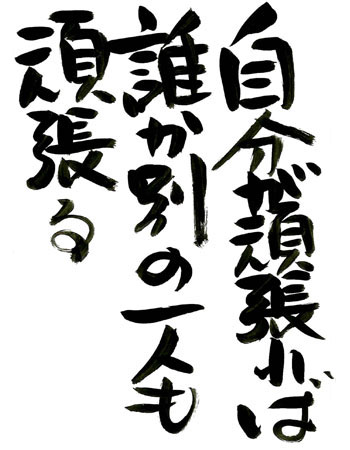 自分が頑張れば
誰か別の一人も
頑張る